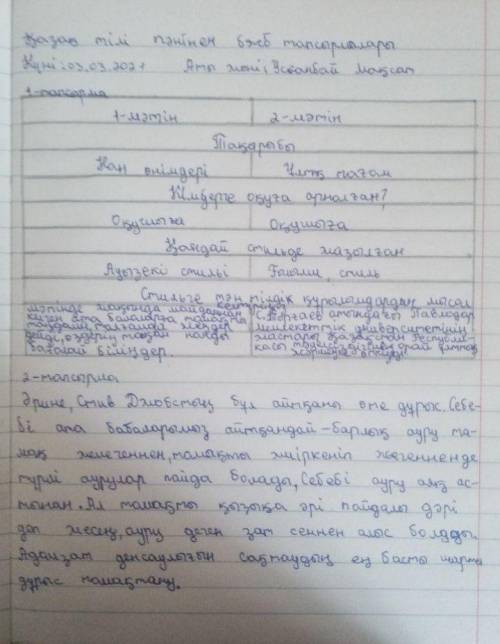 Қазақ тілі пәнінен бжб тапсырмалары
Күні: 03.03.2021 Аты жөні: Мақсат
1-тапсырма
1-мәтін 2-мәтін
Тақырыбы
Нан өнімдері Ұлттық тағам
Кімдерге оқуға арналған?
Оқушыға Оқушыға
Қандай стильде жазылған
Ауызекі стильі Ғылыми стиль
Стильге тән тілдік құрылымдардан мысал
С. Торғаев атындағы Павлодар
мемлекеттік университетінің
жастары Қазақстан Республи-
бағалай біліңдер.
2-тапсырма
Әрине, Стив Джобстың бұл айтқаны өте дұрыс. Себе-
бі ата бабаларымыз айтқандай - барлық ауру та-
мақ жемегеннен, тамақты жиіркеніп жегенненде
түрлі аурулар пайда болады, Себебі ауру аяқ ас-
тынан. Ал тамақты қызыға әрі пайдалы дәрі
деп жесең, ауру деген зат сеннен алыс болады.
Адамзат денсаулығын сақтаудың ең басты шарты
дұрыс тамақтану.